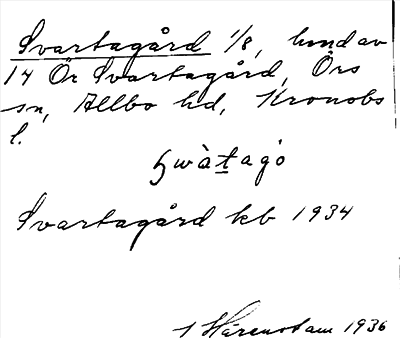 Svartagård 1/8, hmd av
14 Ör Svartagård, Örs
sn, Allbo hd, Kronobs
l.
swàtagò
Svartagård kb 1934
Härenstam 1936